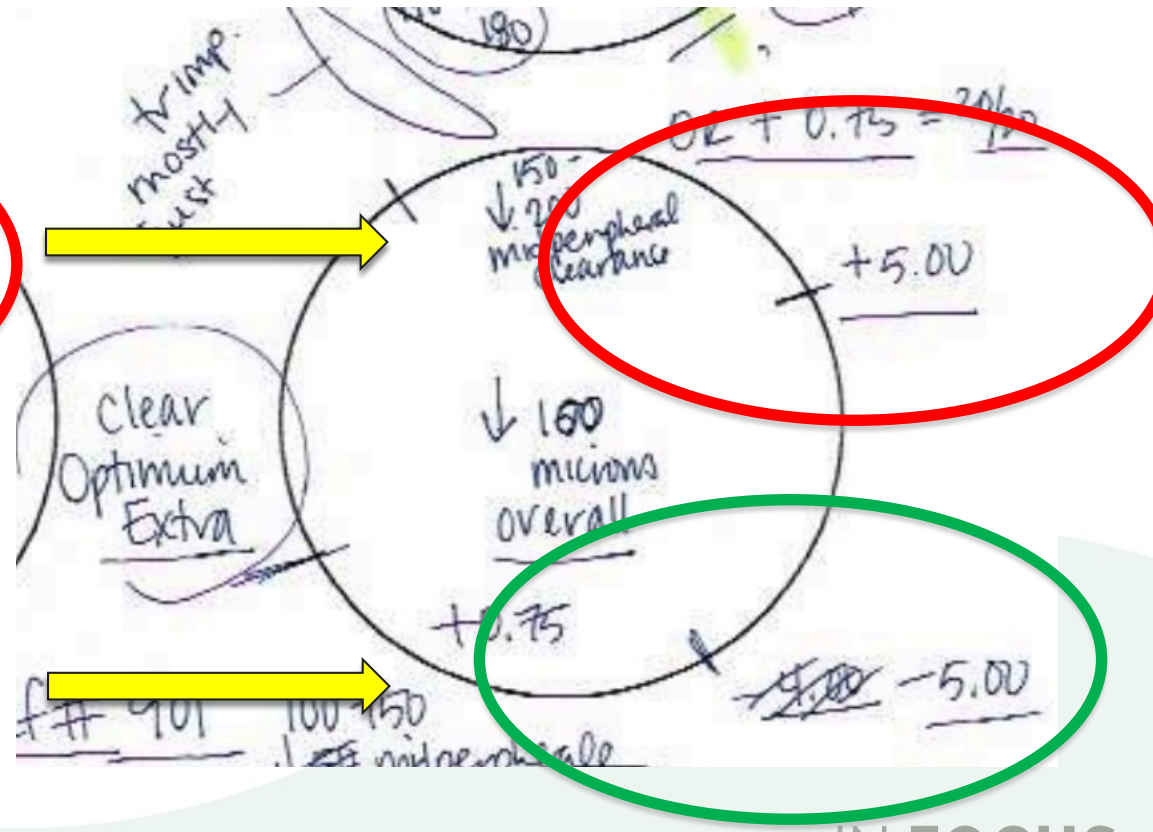 180
trimp.
mostly
just
OR + 0.75 = 20/60
150-
↓ 200
midperipheral
clearance
+5.00
Clear
Optimum
Extra
↓ 100
microns
overall
+0.75
-4.00 -5.00
f# 901
100-150
midperipheral
IN FOCUS